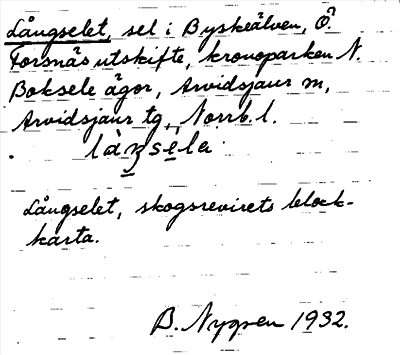 Långselet, sel i Byskeälven, Ö.
Forsnäs utskifte, kronoparken N.
Boksele ägor, Arvidsjaur sn,
Arvidsjaur tg, Norrb. l.
Långselet, skogsrevirets block-
karta.
B. Nygren 1932.